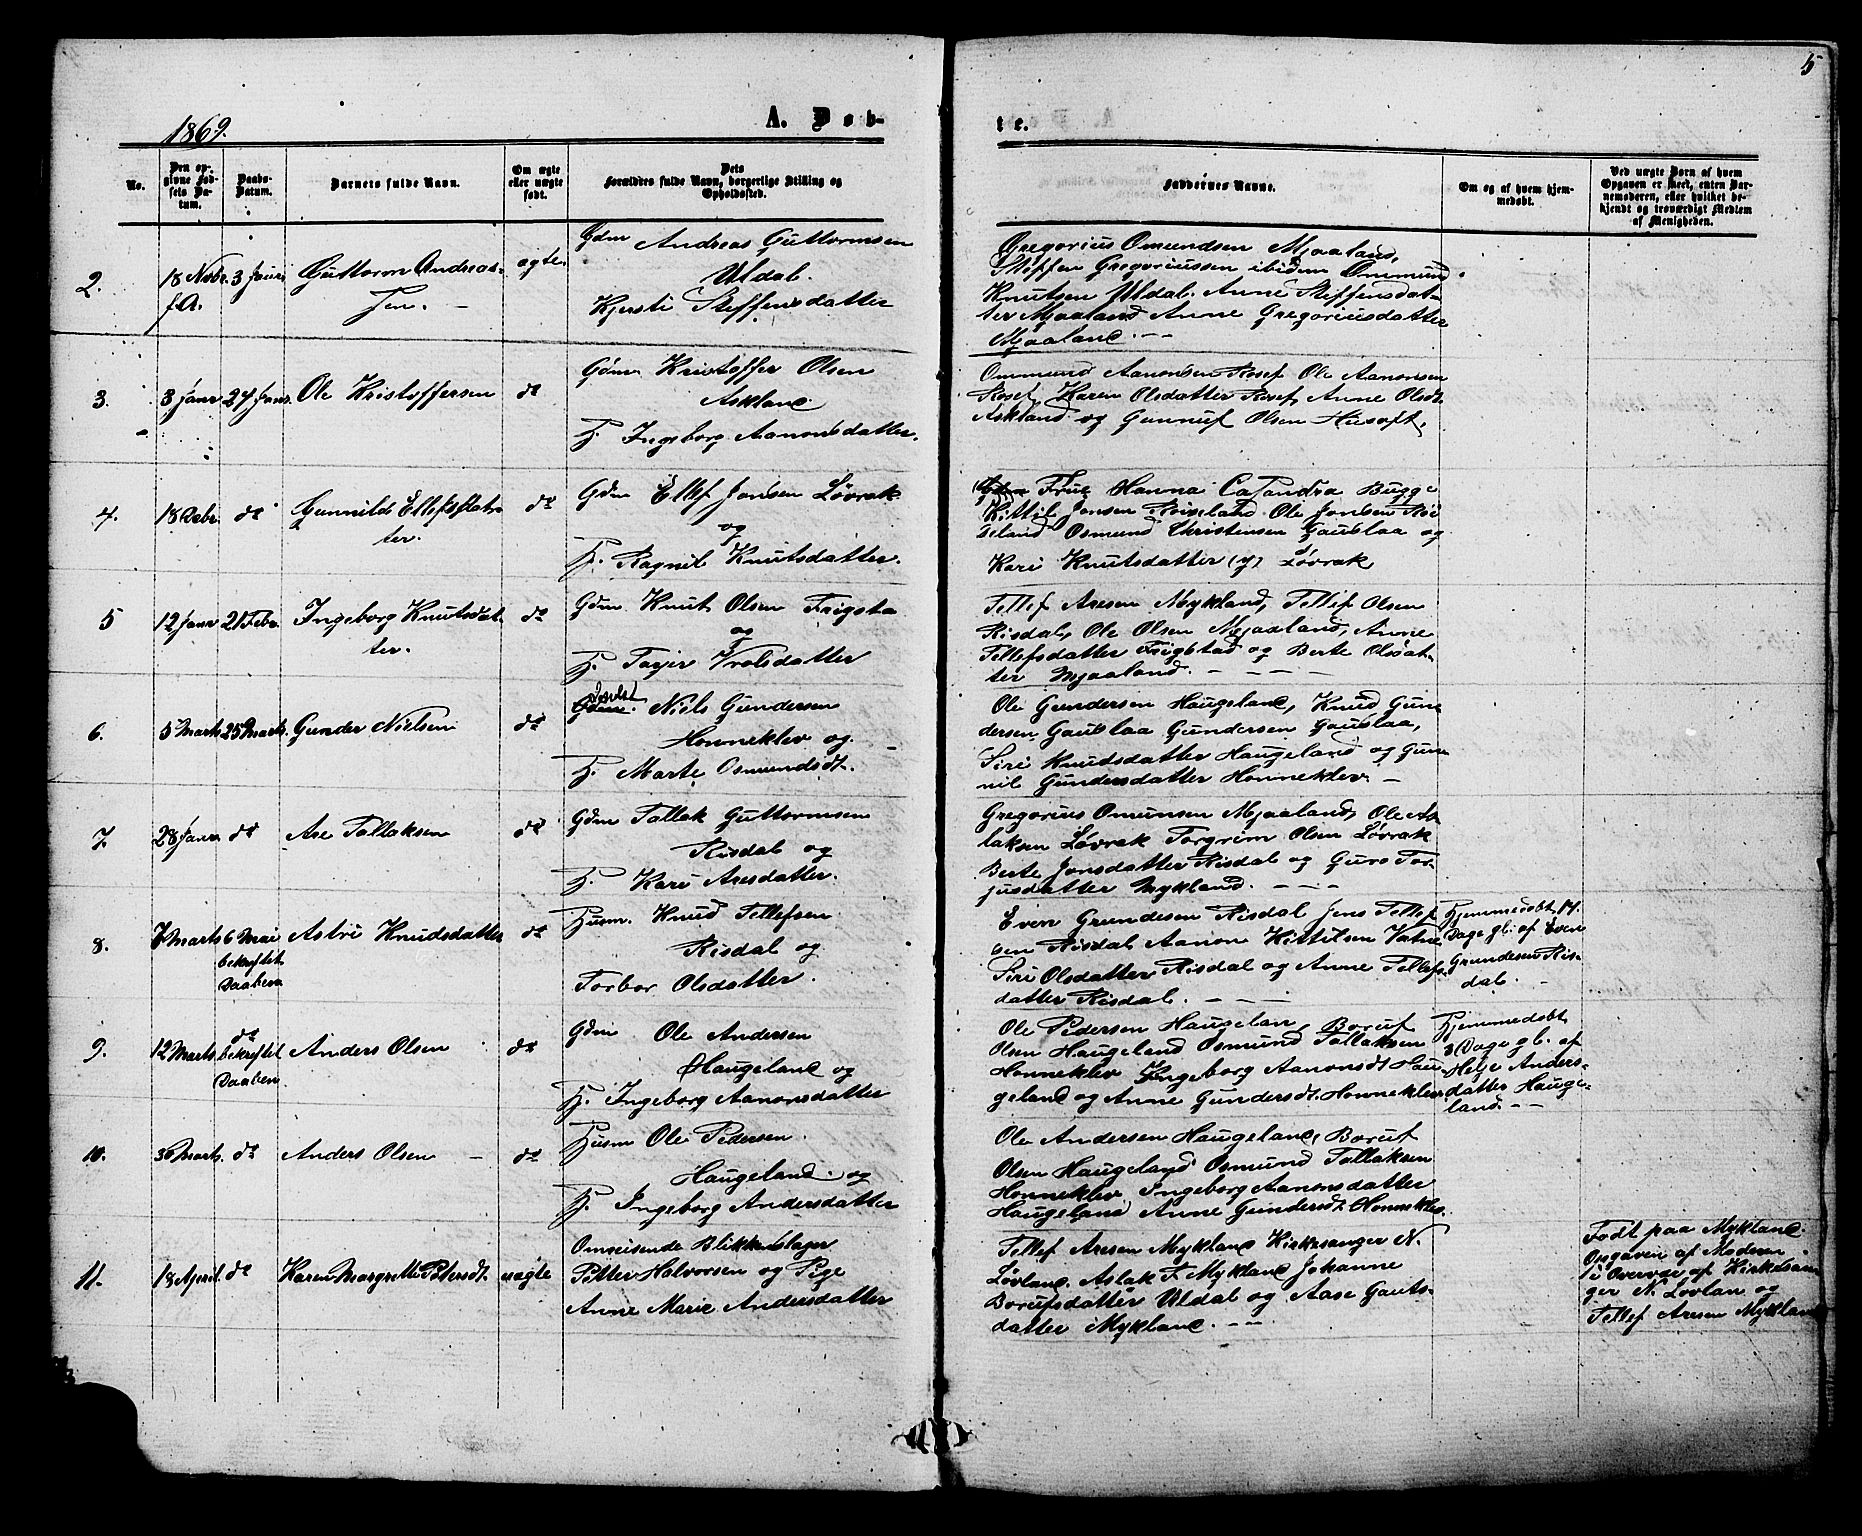 5
1869.
A. Døb-
te.
No.
Den op-
givne Fød-
sels Da-
tum.
Daabs-
Datum.
Barnets fulde Navn.
Om ægte
eller uægte
født.
Dets
Forældres fulde Navn, borgerlige Stilling og
Opholdssted.
Faddernes Navne.
Om og af hvem hjem-
medøbt.
Ved uægte Børn af hvem
Opgaven er skeet, enten Bar-
nemoderen, eller hvilket be-
kjendt og troværdigt Medlem
af Menigheden.
2.
18 Novbr.
f. A.
3 Janr.
Guttorm Andreas-
sen. -
ægte.
Gdm Andreas Guttormsen
Uldal.
Kjersti Steffensdatter
Gregorius Omundsen Mjaaland,
Steffen Gregoriussen ibidem Ommund
Knutsen Uldal. Anne Steffensdat-
ter Mjaaland Anne Gregoriusdatter
Mjaaland. --
3.
3 Janr
24 Janr.
Ole Kristoffersen
do
Gdm. Kristoffer Olsen
Askland.
H. Ingeborg Aanonsdatter.
Ommund Aanonsen Rosef Ole Aanonsen
Roset, Karen Olsdatter Roset, Anne Olsdt.
Askland og Gunnuf Olsen Husoft.
4.
18 Debr.
do
Gunnild Ellefsdat-
ter.
do
Gdm Ellef Jonsen Løvrak
og
H. Ragnil Knutsdatter.
Frue Hanna Casandra Bugge
Kittil Jonsen Roiseland Ole Jonsen Röi
seland Osmund Christensen Gauslaa og
Kari Knutsdatter (y) Løvrak
5
12 Janr
21 Febr.
Ingeborg Knutsdat-
ter.
do
Gdm. Knut Olsen Frigsta
og
H. Tarjer Vrolsdatter
Tellef Aresen Mykland, Tellef Olsen
Risdal, Ole Olsen Mjaaland, Anne
Tellefsdatter Frigstad og Berte Olsdat-
ter Mjaaland. - - - -
6.
5 Marts
25 Marts.
Gunder Nielsen
do
Gdm. Niels Gundersen
Honneklev og
H. Marte Osmundsdt.
Ole Gundersen Haugeland, Knud Gun
dersen Gauslaa Gundersen Gauslaa,
Siri Knutsdatter Haugeland og Gun-
nil Gundersdatter Honneklev. -
7.
28 Janr.
do
Are Tallaksen
do
Gdm Tallak Guttormsen
Risdal og
H. Kari Aresdatter.
Gregorius Omunsen Mjaaland, Ole As
laksen Løvrak Torgrim Olsen Løvrak
Berte Jonsdatter Risdal og Guro Tor-
jusdatter Mykland. - - -
8.
7 Marts
6 Mai
bekreftet
Daaben
Astri Knudsdatter
do
Husm. Knud Tellefsen
Risdal og
Torbor Olsdatter.
Even Grundesen Risdal Jens Tellef
sen Risdal Aanon Kittilsen Vatne
Siri Olsdatter Risdal og Anne Tellefs-
datter Risdal. - - -
Hjemmedøbt, 14.
Dage gl. af Even
Grundesen Ris-
dal. -
9.
12 Marts.
do
bekreftet
Daaben.
Anders Olsen
do
Gdm Ole Andersen
Haugeland og
H. Ingeborg Aanonsdatter
Ole Pedersen Haugelan, Boruf
Olsen Haugeland Osmund Tallaksen
Honneklev Ingeborg Aanonsdt Hau-
geland og Anne Gundersdt. Honneklev
Hjemmedøbt
3 Dage gl. af
Helje Anders-
datter Hauge-
land. --
10.
30 Marts.
do
Anders Olsen -
do
Husm Ole Pedersen.
Haugeland. og
H. Ingeborg Andersdatter
Ole Andersen Haugeland, Boruf
Olsen Haugeland Osmund Tallaksen
Honneklev, Ingeborg Aanonsdatter
Haugeland Anne Gundersdt. Honneklev.
11.
18 April.
do
Karen Margrette Petersdt.
uægte
Omreisende Blikkenslager
Petter Halvorsen og Pige
Anne Marie Andersdatter
Tellef Aresen Mykland Kirkesanger N.
Løvland. Aslak T. Mykland Johanne
Borufsdatter Uldal og Aase Gauts-
datter Mykland. --
Født paa Mykland.
Opgaven af Moderen
i Overvær af Kirkesan
ger N. Løvlan og
Tellef Aresen Mykland